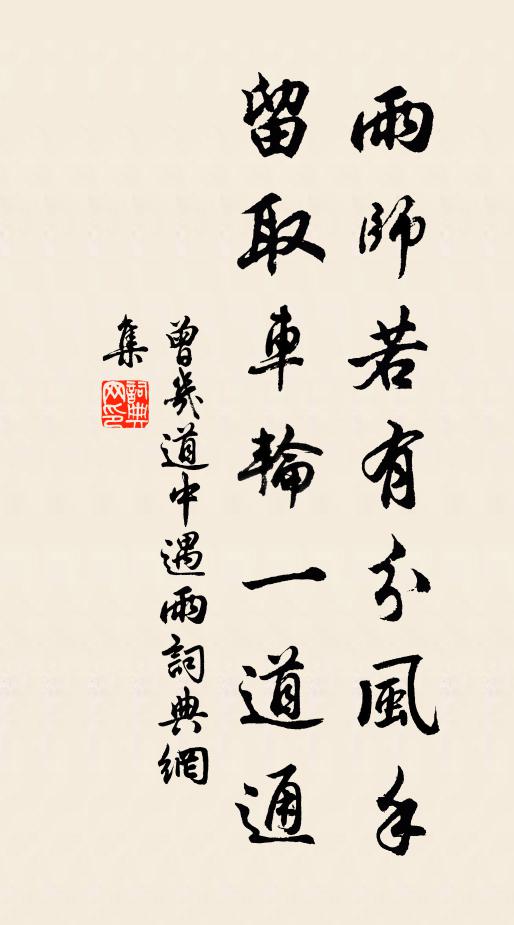 雨師若有分風手
留取車輪一道通
曾幾道中遇雨詞典網
集
詞典網印